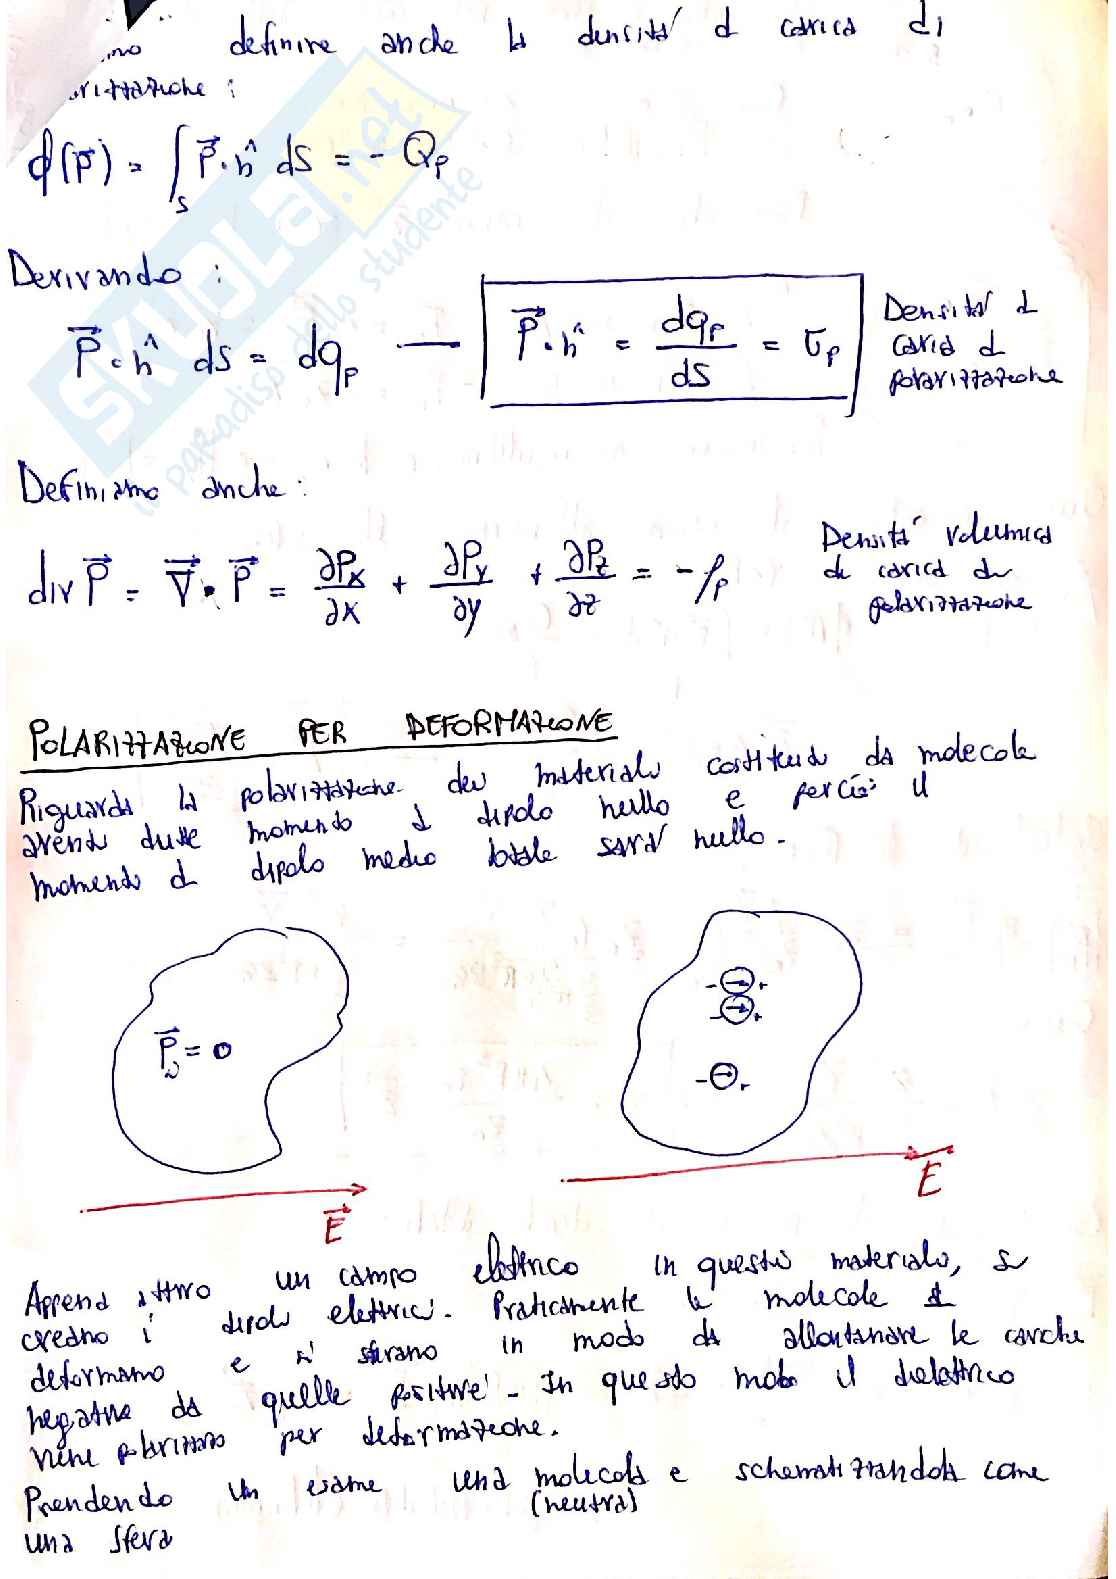 definire anche la densità d carica di
φ(P⃗) = ∫_S P⃗·n̂ dS = - Q_P
Derivando :
P⃗·n̂ dS = dq_P — P⃗·n̂ = dq_P/dS = σ_P
Densità d
carica d
polarizzazione
Definiamo anche :
div P⃗ = ∇⃗·P⃗ = ∂P_x/∂x + ∂P_y/∂y + ∂P_z/∂z = - ρ_P
Densità volumica
di carica di
polarizzazione
POLARIZZAZIONE PER DEFORMAZIONE
Riguarda la polarizzazione dei materiali costituiti da molecole
aventi tutte momento d dipolo nullo e perciò il
momento d dipolo medio totale sarà nullo.
P⃗ = 0
- → +
- → +
- → +
E⃗
E⃗
Appena attivo un campo elettrico in questi materiali, si
creano i dipoli elettrici. Praticamente le molecole si
deformano e si stirano in modo da allontanare le cariche
negative da quelle positive. In questo modo il dielettrico
viene polarizzato per deformazione.
Prendendo in esame una molecola e schematizzandola come
(neutra)
una sfera
SKUOLA.net
il paradiso dello studente